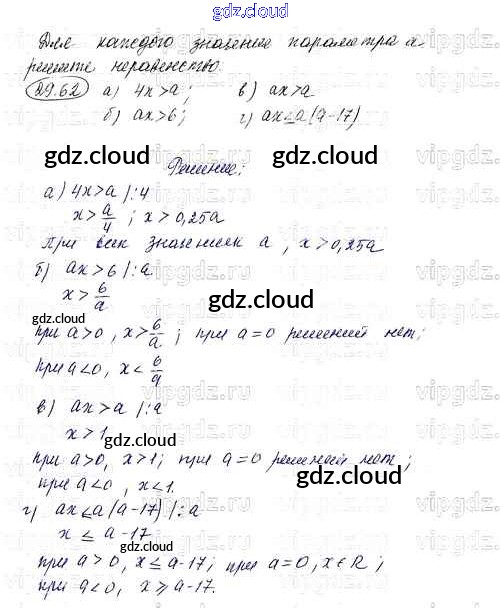 gdz.cloud
Для каждого значения параметра a
решите неравенство.
29.62 а) 4x>a; в) ax>a
б) ax>6; г) ax≤a(a-17)
gdz.cloud gdz.cloud
Решение:
а) 4x>a /:4
x>a/4; x>0,25a
при всех значениях a, x>0,25a
б) ax>6 /:a
x>6/a
gdz.cloud
gdz.cloud
при a>0, x>6/a; при a=0 решений нет;
при a<0, x<6/a
gdz.cloud
в) ax>a /:a
x>1
gdz.cloud
при a>0, x>1; при a=0 решений нет;
при a<0, x<1.
gdz.cloud
г) ax≤a(a-17) /:a
x≤a-17
gdz.cloud
при a>0, x≤a-17; при a=0, x∈R;
при a<0, x⩾a-17.